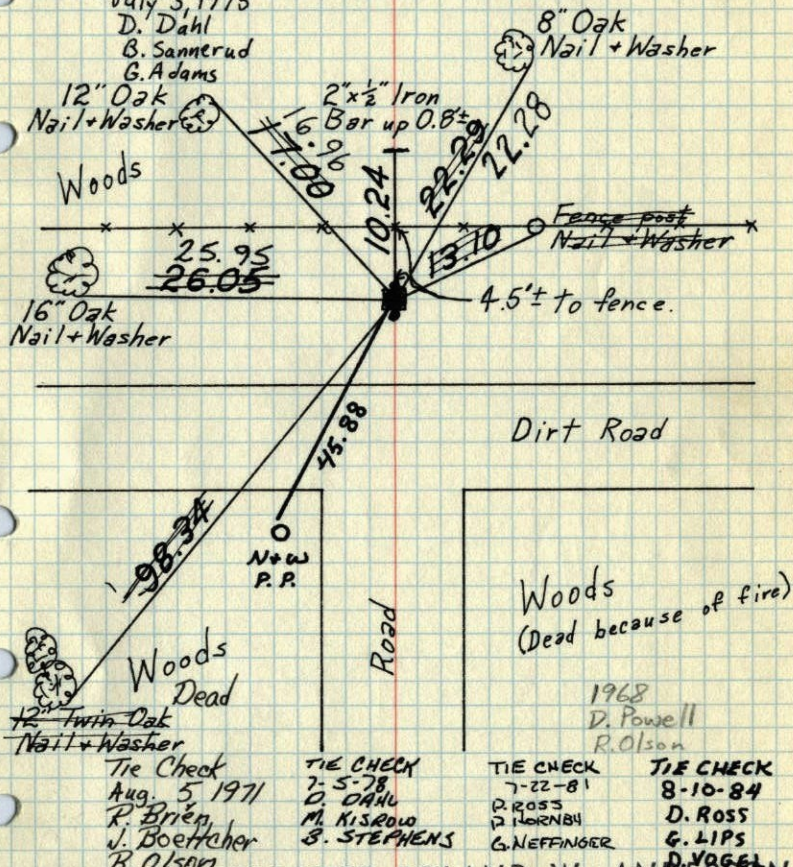 July 5, 1973
D. Dahl
B. Sannerud
G. Adams
8" Oak
Nail + Washer
12" Oak
Nail + Washer
2" x 1/2" Iron
Bar up 0.8'±
16.96
17.00
10.24
22.29
22.28
Woods
Fence post
Nail + Washer
13.10
25.95
26.05
16" Oak
Nail + Washer
4.5'± to fence.
Dirt Road
45.88
98.34
N+W
P.P.
Woods
(Dead because of fire)
Road
Woods
Dead
12" Twin Oak
Nail + Washer
1968
D. Powell
R. Olson
Tie Check
Aug. 5 1971
R. Brien,
J. Boettcher
R. Olson
TIE CHECK
7-5-78
D. DAHL
M. KISROW
B. STEPHENS
TIE CHECK
7-22-81
D. ROSS
P. HORNBY
G. NEFFINGER
TIE CHECK
8-10-84
D. ROSS
G. LIPS
D. VOGEL